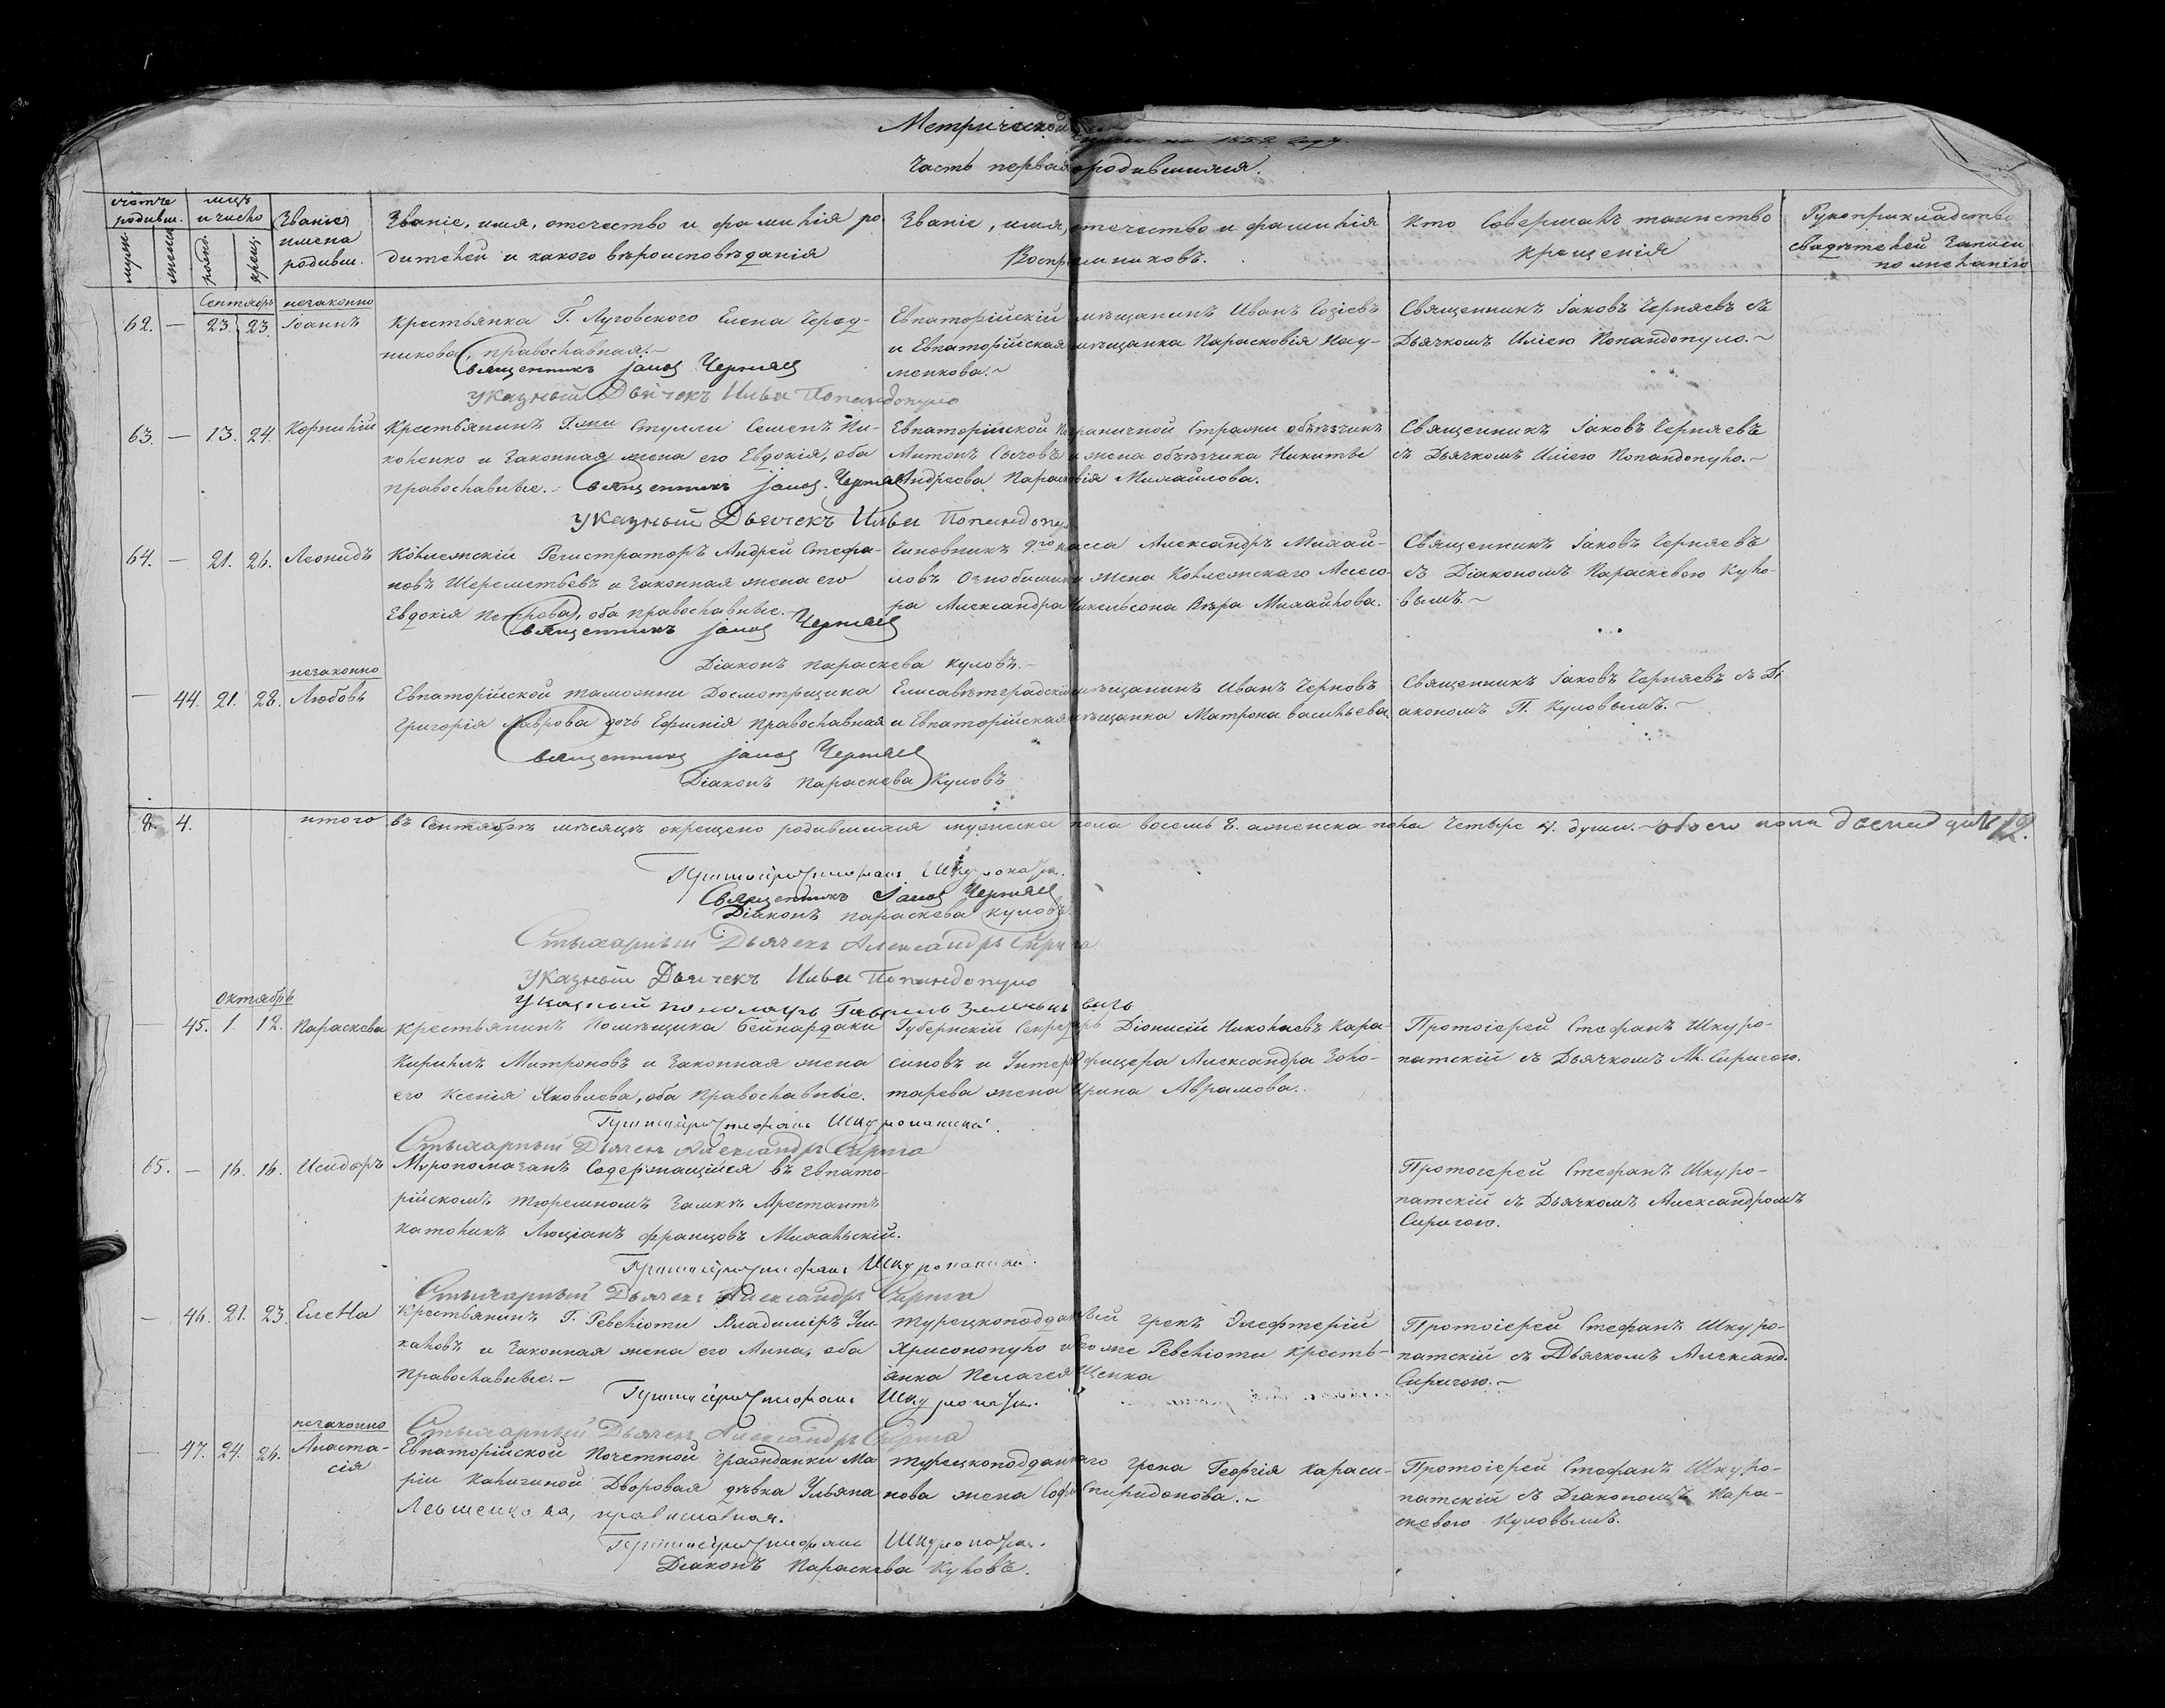 Метрической
на 1852 годъ.
Часть первая о родившихся.
Счетъ родивш.
муж.
женск.
мѣц. и число
рожд.
крещ.
Званіе, имена родивш.
Званіе, имя, отчество и фамилія ро-
дителей и какого вѣроисповѣданія
Званіе, имя, отечество и фамилія
Воспріемниковъ.
Кто Совершалъ таинство
крещенія
Рукоприкладство
свидѣтелей Записи
по желанію
Сентябрь
незаконно
62. — 23. 23. Іоаннъ
Крестьянка Г. Луговского Елена Черед-
никова, православная.~
Священникъ Іаковъ Черняев
Указный Дьячекъ Илья Попандопуло
Евпаторійскій мѣщанинъ Иванъ
и Евпаторійская мѣщанка Парасковія Нау-
менкова.~
Священникъ Іаковъ Черняевъ съ
Дьячкомъ Иліею Попандопуло.~
63. — 13. 24. Корнилій
Крестьянинъ Г-жи Стулли Семенъ Ни-
коненко и Законная жена его Евдокія, оба
православные.~
Священникъ Іаков. Черняев
Указный Дьячекъ Илья Попандопуло
Евпаторійской Пограничной Стражи объѣзчикъ
Антонъ Сычовъ и жена объѣзчика Никиты
Андреева Парасковія Михайлова.
Священникъ Іаковъ Черняевъ
съ Дьячкомъ Иліею Попандопуло.~
64. — 21. 26. Леонидъ
Коллежскій Регистраторъ Андрей Стефа-
новъ Шереметьевъ и Законная жена его
Евдокія Петрова, оба православные.~
Священникъ Іаков Черняев
Діаконъ Параскева Куловъ.~
Чиновникъ 9го класса Александръ Михай-
ловъ Огнобишин и жена Коллежскаго Ассесо-
ра Александра Никельсона Вѣра Михайлова.
Священникъ Іаковъ Черняевъ
съ Діакономъ Параскевою Куло-
вымъ.~
незаконно
— 44. 21. 28. Любовь
Евпаторійской таможни Досмотрщика
Григорія Лаврова дочь Ефимія православная
Священникъ Іаков Черняев
Діаконъ Параскева Куловъ
Елисаветградскій мѣщанинъ Иванъ Черновъ
и Евпаторійская мѣщанка Матрона Васильева.
Священникъ Іаковъ Черняевъ съ Ді-
акономъ П. Куловымъ.~
8. 4. итого въ Сентябрѣ мѣсяцѣ окрещено родившихся мужеска пола восемь 8. а женска пола Четыре 4. души.~ обоего пола двенадцать 12.
Протоіерей Стефанъ Шкуропат.
Священникъ Іаков Черняев
Діаконъ Параскева Куловъ
Стихарный Дьячекъ Александръ Сирига
Указный Дьячекъ Илья Попандопуло
Указный пономарь Гавріилъ
Октябрь
— 45. 1. 12. Параскева
Крестьянинъ Помѣщика Бейнардаки
Кириллъ Митроновъ и Законная жена
его Ксенія Яковлева, оба православные.
Протоіерей Стефанъ Шкуропатскій.
Стихарный Дьячекъ Александръ Сирига
Губернскій Секретарь Діонисій Николаевъ Кара-
синовъ и Унтеръ Офицера Александра Золо-
тарева жена Ирина Аврамова.
Протоіерей Стефанъ Шкуро-
патскій съ Дьячкомъ Ал. Сиригою.
65. — 16. 16. Исидоръ
Муропомазанъ Содержащійся въ Евпато-
рійскомъ тюремномъ Замкѣ Арестантъ
католикъ Люціанъ Францовъ Михальскій.
Протоіерей Стефанъ Шкуропатскій.
Стихарный Дьячекъ Александръ Сирига
Протоіерей Стефанъ Шкуро-
патскій съ Дьячкомъ Александромъ
Сиригою.
— 46. 21. 23. Елена
Крестьянинъ Г. Ревеліоти Владиміръ Уш-
каловъ и Законная жена его Анна, оба
православные.~
Протоіерей Стефанъ Шкуропат.
Стихарный Дьячекъ Александръ Сирига
Турецкоподданный Грекъ Элефтерій
Хрисопопуло и Его же Ревеліоти Кресть-
янка Пелагея
Протоіерей Стефанъ Шкуро-
патскій съ Дьячкомъ Александ.
Сиригою.~
незаконно
— 47. 24. 26. Анаста-
сія
Евпаторійской Почетной Гражданки Ма-
ріи Калигиной Дворовая дѣвка Ульяна
Левшенкова, православная.
Протоіерей Стефанъ Шкуропат.
Діаконъ Параскева Куловъ.
Турецкоподданнаго Грека Георгія Караси-
нова жена Софія Спиридонова.~
Протоіерей Стефанъ Шкуро-
патскій съ Діакономъ Пара-
скевою Куловымъ.